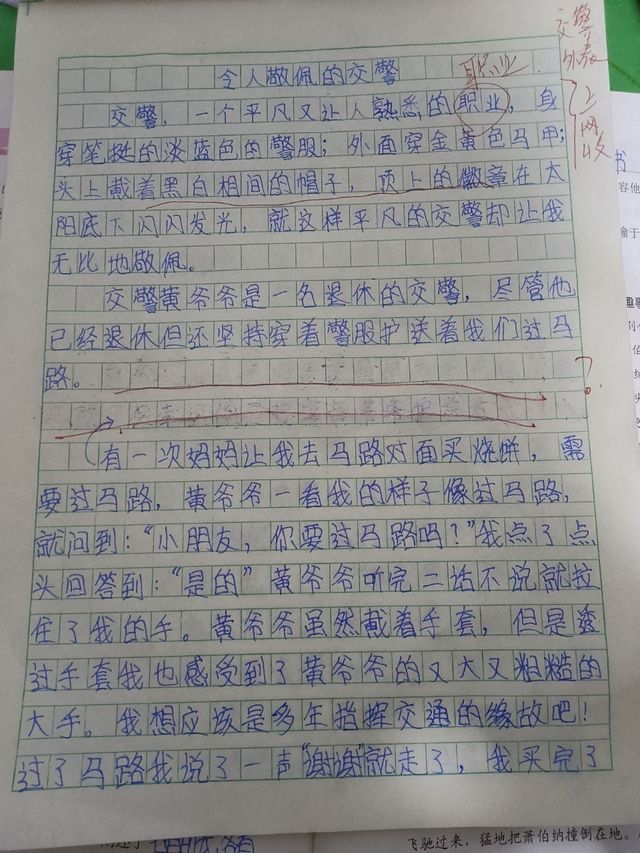 令人敬佩的交警
职业
交警
外表
上网收
交警，一个平凡又让人熟悉的职业，身
穿笔挺的淡蓝色的警服；外面穿金黄色马甲；
头上戴着黑白相间的帽子，顶上的徽章在太
阳底下闪闪发光，就这样平凡的交警却让我
无比地敬佩。
交警黄爷爷是一名退休的交警，尽管他
已经退休但还坚持穿着警服护送着我们过马
路。
？
有一次妈妈让我去马路对面买烧饼，需
要过马路，黄爷爷一看我的样子像过马路，
就问到：“小朋友，你要过马路吗？”我点了点
头回答到：“是的”黄爷爷听完二话不说就拉
住了我的手。黄爷爷虽然戴着手套，但是透
过手套我也感受到了黄爷爷的又大又粗糙的
大手。我想应该是多年指挥交通的缘故吧！
过了马路我说了一声“谢谢”就走了，我买完了
书
容他
喻于
重
列
伯
头
飞驰过来，猛地把萧伯纳撞倒在地。